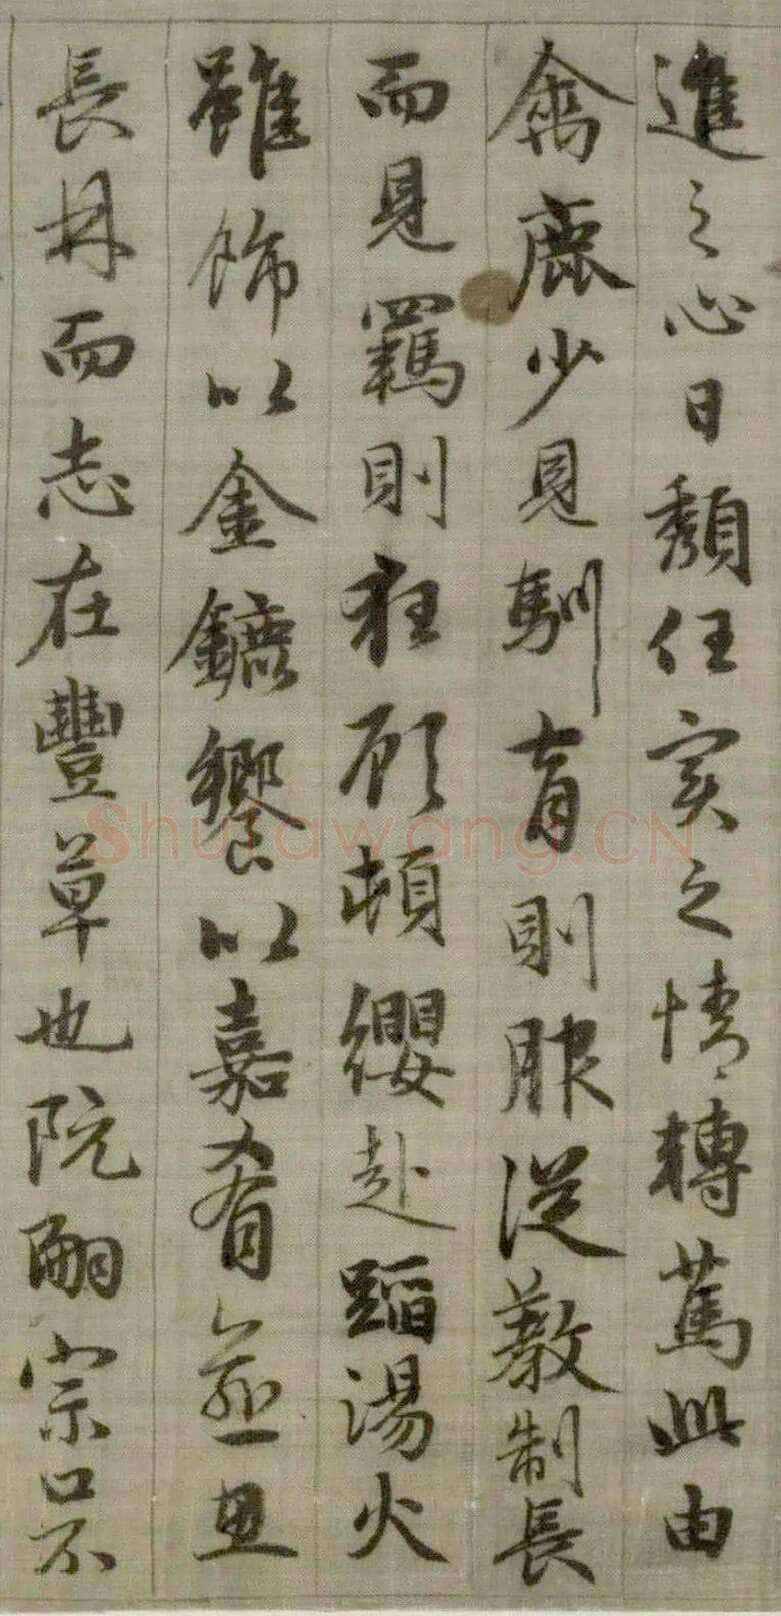 進之心日頹任實之情轉篤此由
禽鹿少見馴育則服從教制長
而見羈則狂顧頓纓赴蹈湯火
雖飾以金鑣饗以嘉肴逾思
長林而志在豐草也阮嗣宗口不
Shufawang.CN